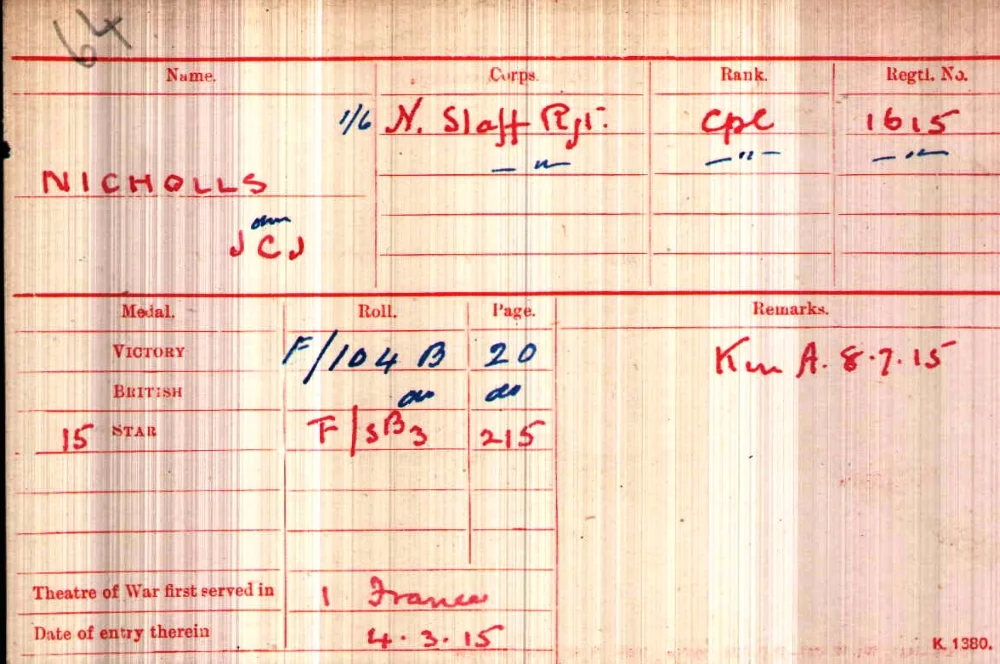 64
Name. Corps. Rank. Regtl. No.
1/6 N. Staff Rgt. Cpl 1615
— " — — " — — " —
NICHOLLS
J C J
Medal. Roll. Page. Remarks.
VICTORY F/104 B 20 K in A. 8.7.15
BRITISH do do
15 STAR F/3B3 215
Theatre of War first served in 1 France
Date of entry therein 4.3.15
K. 1380.